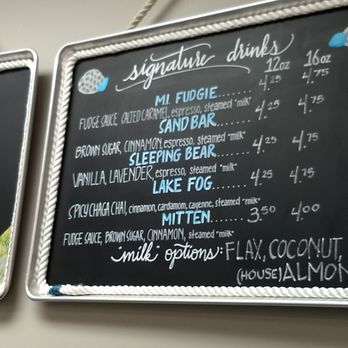 signature drinks
12oz 16oz
MI FUDGIE....... 4.25 4.75
FUDGE SAUCE, SALTED CARAMEL, espresso, steamed "milk"
SAND BAR........ 4.25 4.75
BROWN SUGAR, CINNAMON, espresso, steamed "milk"
SLEEPING BEAR...... 4.25 4.75
VANILLA, LAVENDER, espresso, steamed "milk"
LAKE FOG........ 4.25 4.75
SPICY CHAGA CHAI, cinnamon, cardamom, cayenne, steamed "milk"
MITTEN........ 3.50 4.00
FUDGE SAUCE, BROWN SUGAR, CINNAMON, steamed "milk"
"milk" options: FLAX, COCONUT,
(HOUSE) ALMON